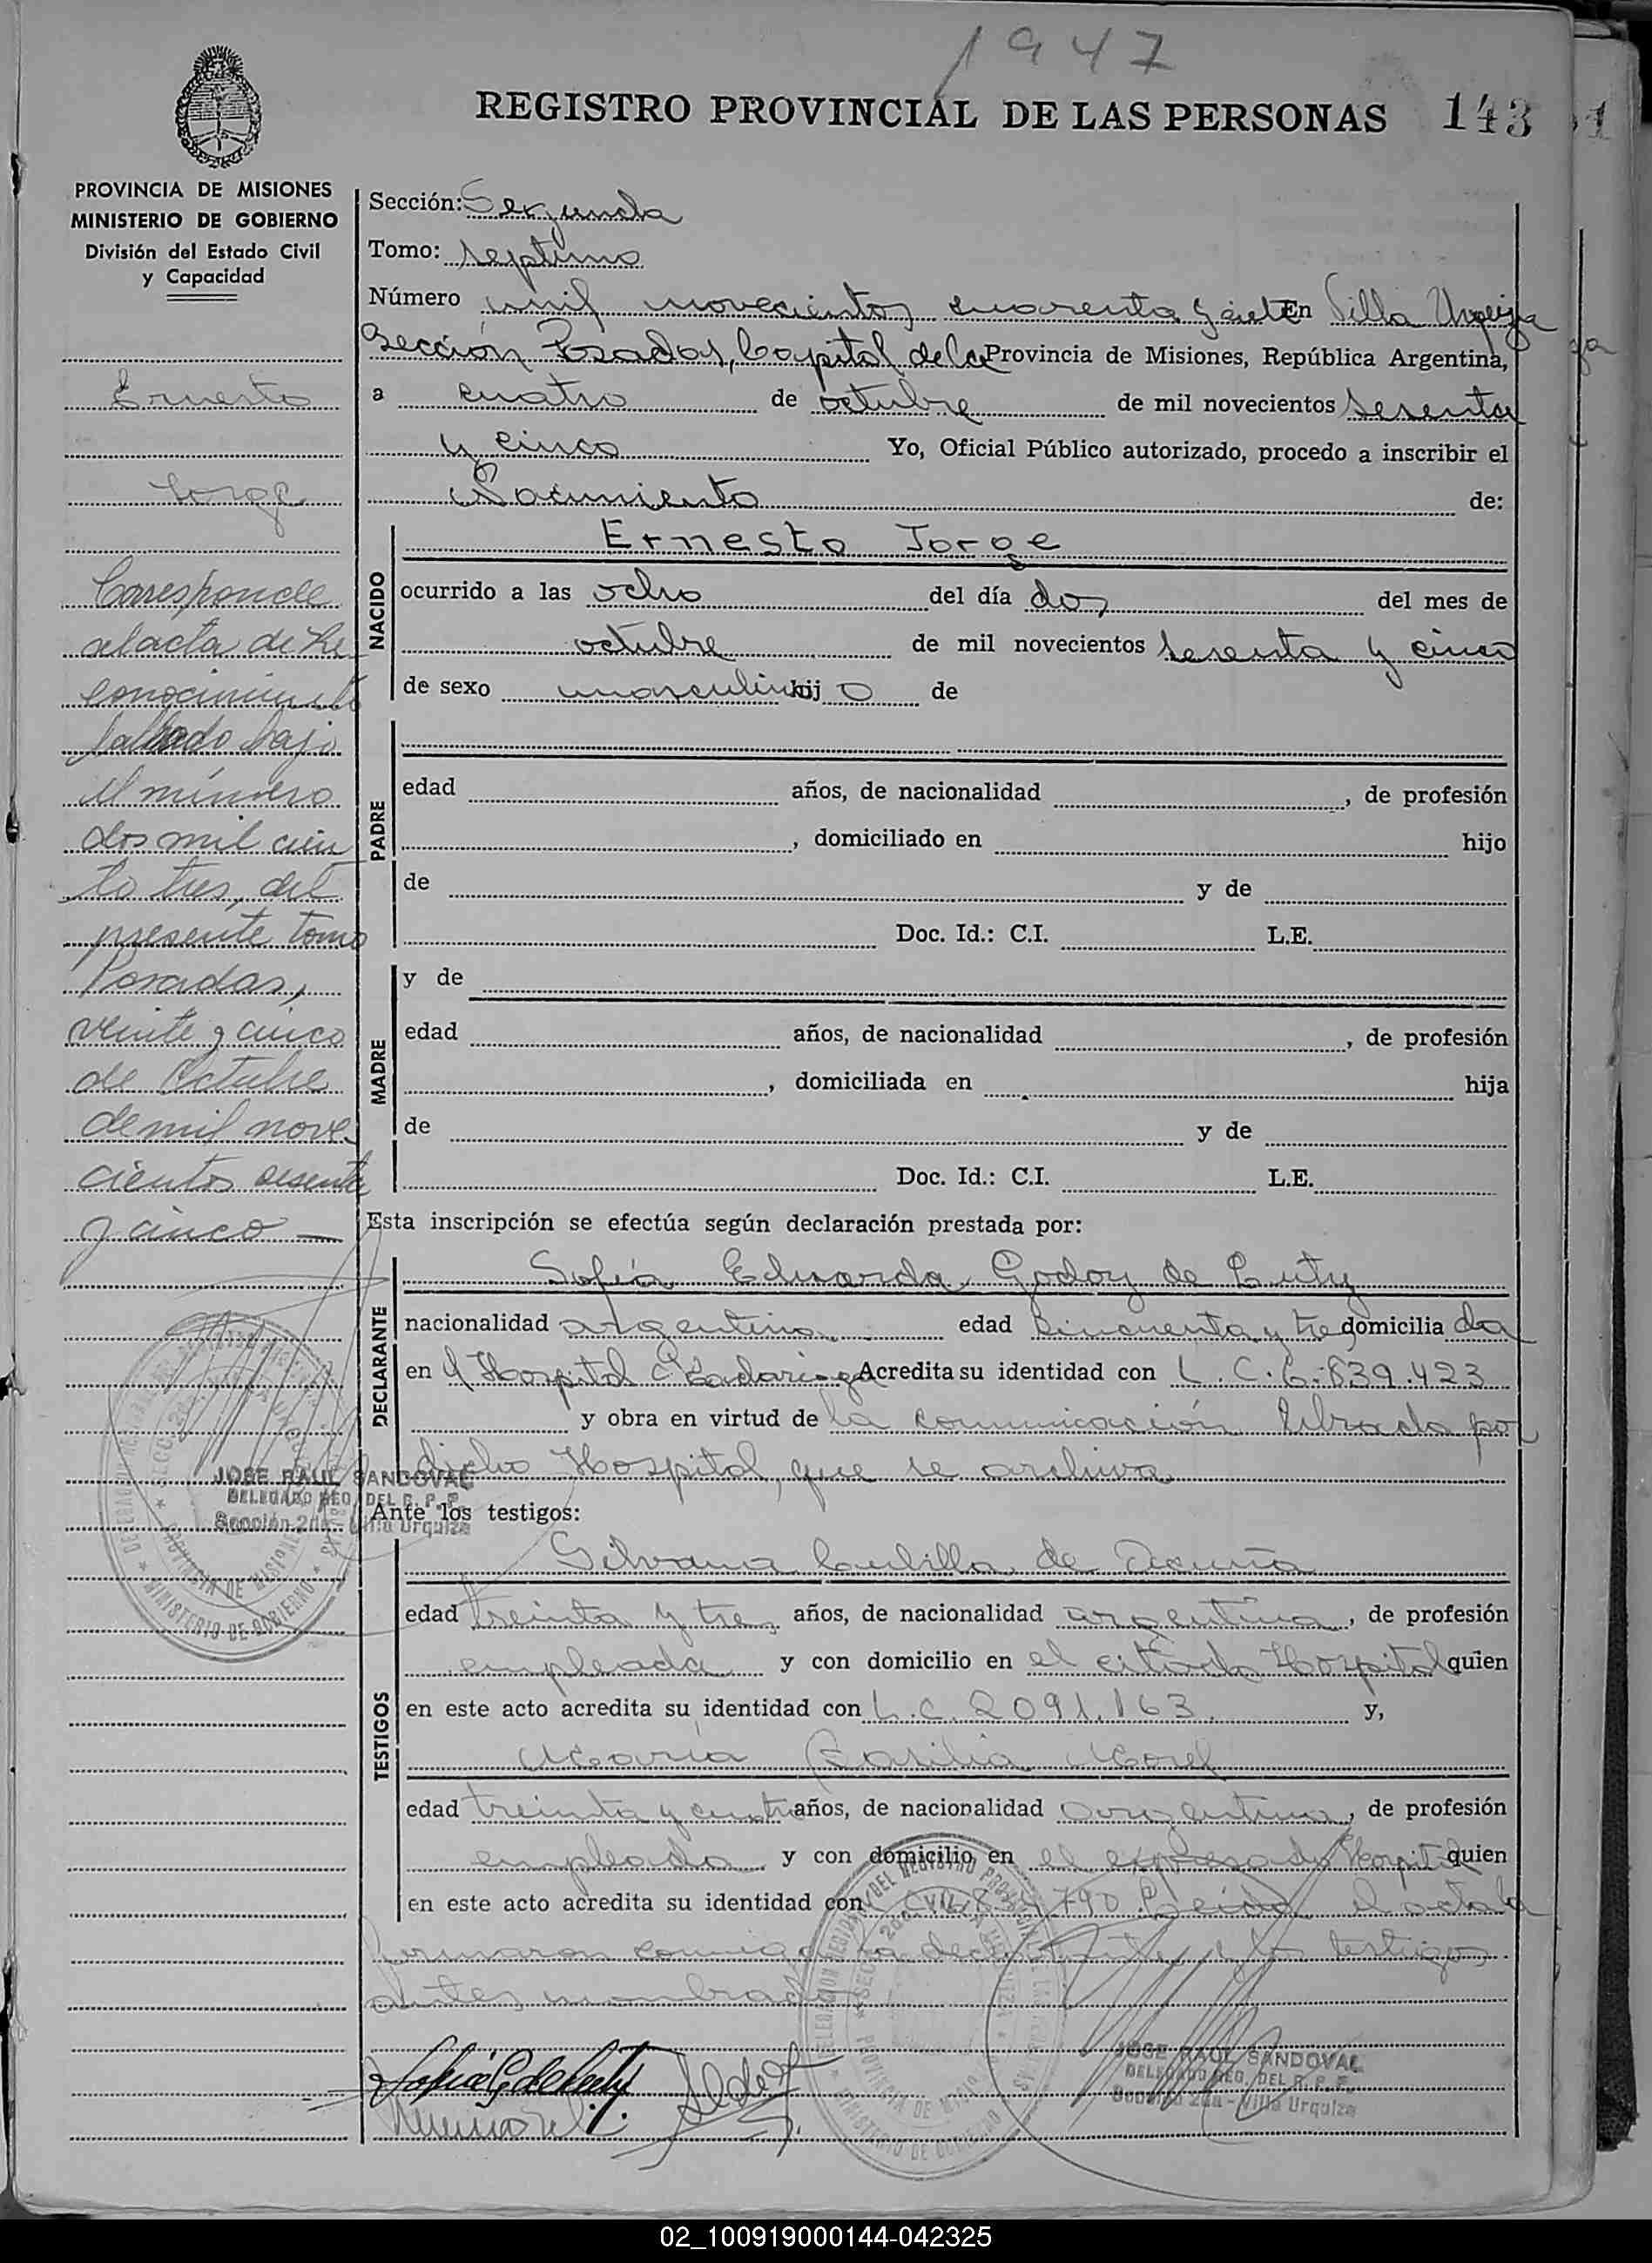 1947
REGISTRO PROVINCIAL DE LAS PERSONAS 143
PROVINCIA DE MISIONES
MINISTERIO DE GOBIERNO
División del Estado Civil
y Capacidad
Ernesto
Jorge
Corresponde
al acta de Re
conocimiento
labrado bajo
el número
dos mil cien
to tres, del
presente tomo
Posadas,
veinte y cinco
de Octubre
de mil nove-
cientos sesenta
y cinco —
JOSE RAUL SANDOVAL
DELEGADO REG. DEL R. P. P.
Sección 2da - Villa Urquiza
Sección: Segunda
Tomo: septimo
Número mil novecientos cuarenta y siete En Villa Urquiza
Sección Posadas, Capital de la Provincia de Misiones, República Argentina,
a cuatro de octubre de mil novecientos sesenta
y cinco Yo, Oficial Público autorizado, procedo a inscribir el
Nacimiento de:
NACIDO
Ernesto Jorge
ocurrido a las ocho del día dos del mes de
octubre de mil novecientos sesenta y cinco
de sexo masculino hij o de
PADRE
edad años, de nacionalidad , de profesión
, domiciliado en hijo
de y de
Doc. Id.: C.I. L.E.
MADRE
y de
edad años, de nacionalidad , de profesión
, domiciliada en hija
de y de
Doc. Id.: C.I. L.E.
Esta inscripción se efectúa según declaración prestada por:
DECLARANTE
Sofía Eduarda Godoy de
nacionalidad argentina edad cincuenta y tres domicilia da
en el Hospital Madariaga Acredita su identidad con L.C. 6.839.423
y obra en virtud de la comunicación librada por
dicho Hospital, que se archiva
Ante los testigos:
TESTIGOS
Silvana de Acuña
edad treinta y tres años, de nacionalidad argentina, de profesión
empleada y con domicilio en el citado Hospital quien
en este acto acredita su identidad con L.C. 2091.163 y,
María Basilia Morel
edad treinta y cuatro años, de nacionalidad argentina, de profesión
empleada y con domicilio en el expresado Hospital quien
en este acto acredita su identidad con Leída el acta la
firmaron conmigo la declarante y los testigos
antes nombrados
JOSE RAUL SANDOVAL
DELEGADO REG. DEL R. P. P.
Sección 2da - Villa Urquiza
02_100919000144-042325